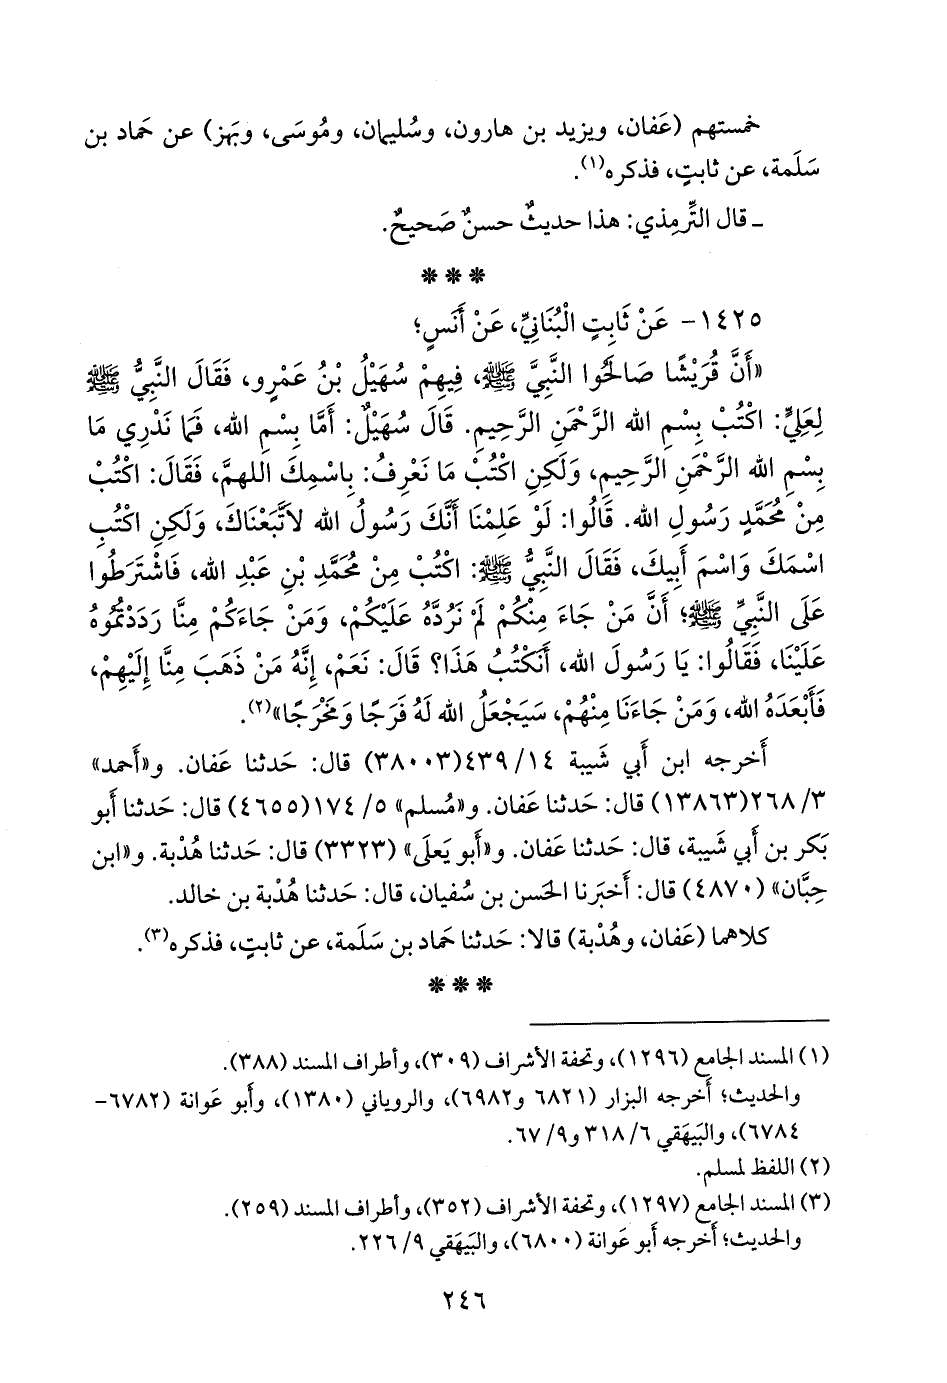 خمستهم (عَفان، ويزيد بن هارون، وسُليمان، ومُوسَى، وبَهز) عن حَماد بن
سَلَمة، عن ثابتٍ، فذكره(١).
ـ قال التِّرمِذي: هذا حديثٌ حسنٌ صَحيحٌ.
* * *
١٤٢٥- عَنْ ثَابِتٍ الْبُنَانِيِّ، عَنْ أَنَسٍ؛
«أَنَّ قُرَيْشًا صَالَحُوا النَّبِيَّ ﷺ، فِيهِمْ سُهَيْلُ بْنُ عَمْرٍو، فَقَالَ النَّبِيُّ ﷺ
لِعَلِيٍّ: اكْتُبْ بِسْمِ الله الرَّحْمَنِ الرَّحِيمِ. قَالَ سُهَيْلٌ: أَمَّا بِسْمِ الله، فَمَا نَدْرِي مَا
بِسْمِ الله الرَّحْمَنِ الرَّحِيمِ، وَلَكِنِ اكْتُبْ مَا نَعْرِفُ: بِاسْمِكَ اللهمَّ، فَقَالَ: اكْتُبْ
مِنْ مُحَمَّدٍ رَسُولِ الله. قَالُوا: لَوْ عَلِمْنَا أَنَّكَ رَسُولُ الله لاَتَّبَعْنَاكَ، وَلَكِنِ اكْتُبِ
اسْمَكَ وَاسْمَ أَبِيكَ، فَقَالَ النَّبِيُّ ﷺ: اكْتُبْ مِنْ مُحَمَّدِ بْنِ عَبْدِ الله، فَاشْتَرَطُوا
عَلَى النَّبِيِّ ﷺ؛ أَنَّ مَنْ جَاءَ مِنْكُمْ لَمْ نَرُدَّهُ عَلَيْكُمْ، وَمَنْ جَاءَكُمْ مِنَّا رَدَدْتُمُوهُ
عَلَيْنَا، فَقَالُوا: يَا رَسُولَ الله، أَنَكْتُبُ هَذَا؟ قَالَ: نَعَمْ، إِنَّهُ مَنْ ذَهَبَ مِنَّا إِلَيْهِمْ،
فَأَبْعَدَهُ الله، وَمَنْ جَاءَنَا مِنْهُمْ، سَيَجْعَلُ الله لَهُ فَرَجًا وَمَخْرَجًا»(٢).
أَخرجه ابن أَبي شَيبة ١٤/ ٤٣٩(٣٨٠٠٣) قال: حَدثنا عَفان. و«أَحمد»
٣/ ٢٦٨(١٣٨٦٣) قال: حَدثنا عَفان. و«مُسلم» ٥/ ١٧٤(٤٦٥٥) قال: حَدثنا أَبو
بَكر بن أَبي شَيبة، قال: حَدثنا عَفان. و«أَبو يَعلَى» (٣٣٢٣) قال: حَدثنا هُدْبة. و«ابن
حِبَّان» (٤٨٧٠) قال: أَخبَرنا الحَسن بن سُفيان، قال: حَدثنا هُدْبة بن خالد.
كلاهما (عَفان، وهُدْبة) قالا: حَدثنا حَماد بن سَلَمة، عن ثابتٍ، فذكره(٣).
* * *
(١) المسند الجامع (١٢٩٦)، وتحفة الأشراف (٣٠٩)، وأطراف المسند (٣٨٨).
والحديث؛ أَخرجه البزار (٦٨٢١ و٦٩٨٢)، والروياني (١٣٨٠)، وأَبو عَوانة (٦٧٨٢-
٦٧٨٤)، والبَيهَقي ٦/ ٣١٨ و٩/ ٦٧.
(٢) اللفظ لمسلم.
(٣) المسند الجامع (١٢٩٧)، وتحفة الأشراف (٣٥٢)، وأطراف المسند (٢٥٩).
والحديث؛ أَخرجه أَبو عَوانة (٦٨٠٠)، والبَيهَقي ٩/ ٢٢٦.
٢٤٦